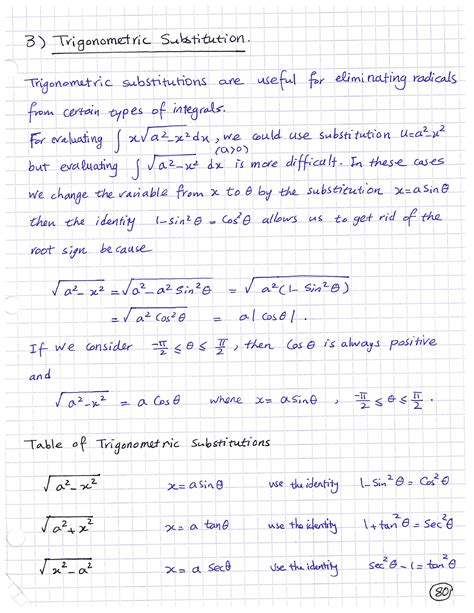 3) Trigonometric Substitution.
Trigonometric substitutions are useful for eliminating radicals
from certain types of integrals.
For evaluating ∫ x√(a²-x²) dx, we could use substitution u=a²-x²
(a>0)
but evaluating ∫ √(a²-x²) dx is more difficult. In these cases
we change the variable from x to θ by the substitution x=a sinθ
then the identity 1-sin²θ = cos²θ allows us to get rid of the
root sign because
√(a²-x²) = √(a²-a² sin²θ) = √(a²(1-sin²θ))
= √(a² cos²θ) = a|cosθ|.
If we consider -π/2 ≤ θ ≤ π/2, then cosθ is always positive
and
√(a²-x²) = a cosθ where x= a sinθ , -π/2 ≤ θ ≤ π/2 .
Table of Trigonometric Substitutions
√(a²-x²) x=a sinθ use the identity 1-sin²θ = cos²θ
√(a²+x²) x= a tanθ use the identity 1+tan²θ = sec²θ
√(x²-a²) x= a secθ use the identity sec²θ-1=tan²θ
80